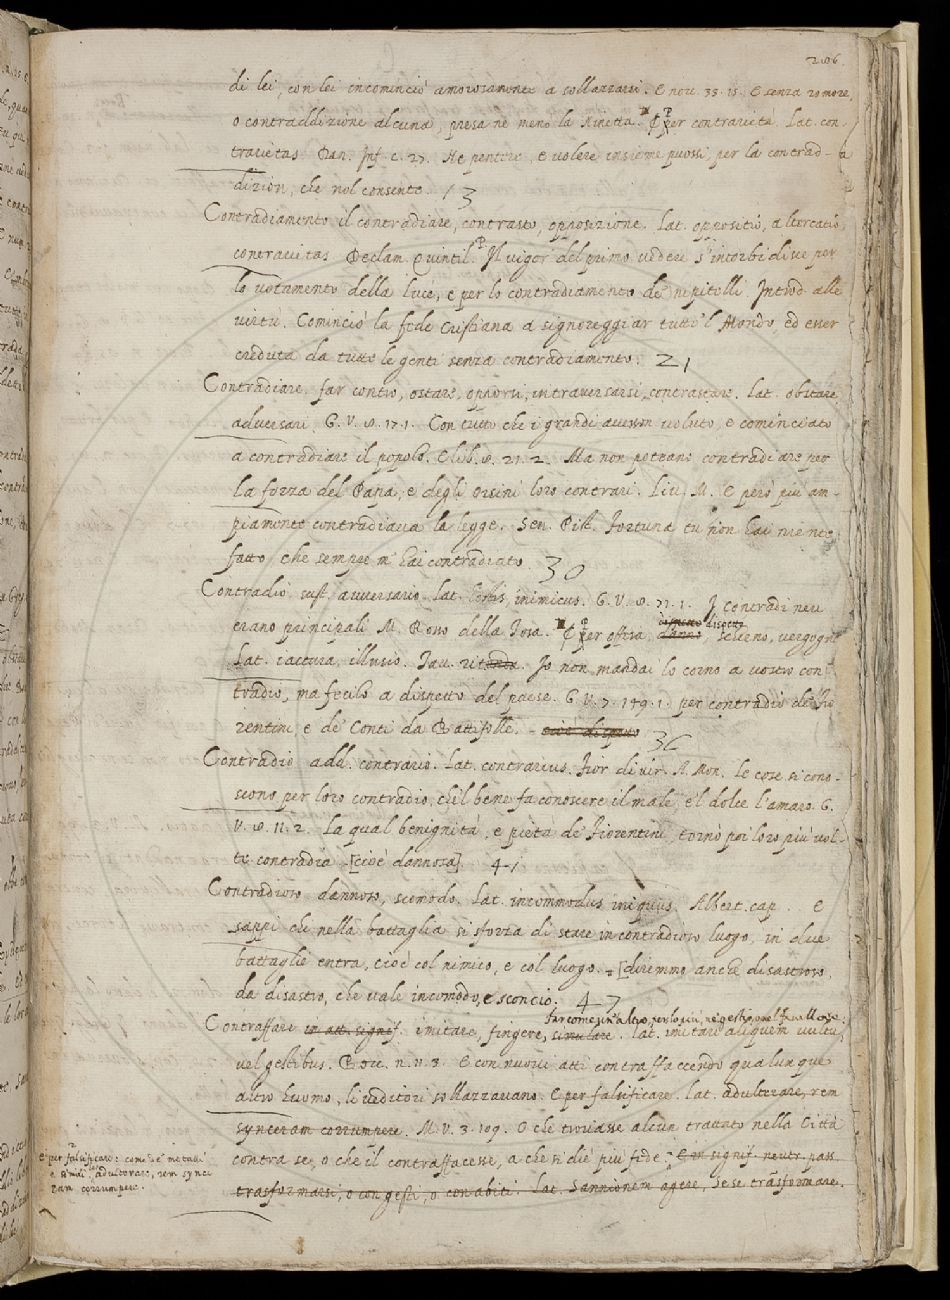 206.
di lei, con lei incominciò amorosamente a sollazzarsi. E nou. 33. 15. E senza romore,
o contraddizione alcuna, presa ne menò la Ninetta. ¶ per contrarietà. Lat. con-
trarietas Dan. Inf. c. 27. Ne pentere, e volere insieme puossi, per la contrad-
dizion, che nol consente. 13
Contradiamento il contradiare, contrasto, opposizione. Lat. oppositio, altercatio,
contrarietas Declam. Quintil. P. Il vigor del primo vedere s'intorbidiue per
lo votamento della luce, e per lo contradiamento de nipitelli Introd. alle
virtù. Cominciò la fede Cristiana a signoreggiar tutto 'l Mondo, ed esser
creduta da tutte le genti senza contradiamento. 21
Contradiare. far contro, ostare, opporsi, intrauersarsi, contrastare. Lat. obstare,
aduersari, G. V. 8. 17. 1. Con tutto che i grandi auesson voluto, e cominciato
a contradiare il popolo. E lib. 8. 21. 2. Ma non poteano contradiare per
la forza del Papa, e degli Orsini loro contrari. Liu. M. E però più am-
piamente contradiaua la legge. Sen. Pist. Fortuna tu non hai niente
fatto che sempre m'hai contradiato. 30
Contradio sust. auuersario. Lat. hostis, inimicus. G. V. 8. 71. 1. I contradi neu
erano principali M. Rosso della Tosa. ¶ per offesa, danno, dispetto, scherno, vergogna
Lat. iactura, illusio. Tau. rit. Io non mandai lo corno a vostro con-
tradio, ma fecilo a dispetto del paese. G. V. 7. 149. 1. per contradio de Fio
rentini e de Conti da Battifolle. cioè dispetto 36
Contradio add. contrario. Lat. contrarius. Fior di vir. A. Mon. Le cose si cono-
scono per loro contradio, chi 'l bene fa conoscere il male e 'l dolce l'amaro. G.
V. 8. 11. 2. La qual benignità, e pietà de Fiorentini, tornò poi loro più vol-
te contradia [cioè dannosa] 41
Contradioso dannoso, scomodo. Lat. incommodus iniquus. Albert. cap. . . E
sappi che nella battaglia si sforza di stare in contradioso luogo, in due
battaglie entra, cioè col nimico, e col luogo. [diremmo anche disastroso,
da disastro, che vale incomodo, e sconcio. 47
far come un altro, per lo più, ne gesti, o nel fauellare:
Contraffare in att. signif. imitare, fingere, simulare. Lat. imitari aliquem vultu,
vel gestibus. Bocc. n. 1. 3. E con nuoui atti contraffaccendo qualunque
altro huomo, li veditori sollazzauano. E per falsificare. Lat. adulterare, rem
synceram corrumpere. M. V. 3. 109. O che trouasse alcun trattato nella Città
contra se, o che il contraffacesse, a che si die più fede. E in signif. neutr. pass.
trasformarsi, o con gesti, o con abiti. Lat. Sannionem agere, se se trasformare.
E per falsificare: come si è metalli
e simili adulterare, rem synce
ram corrumpere.